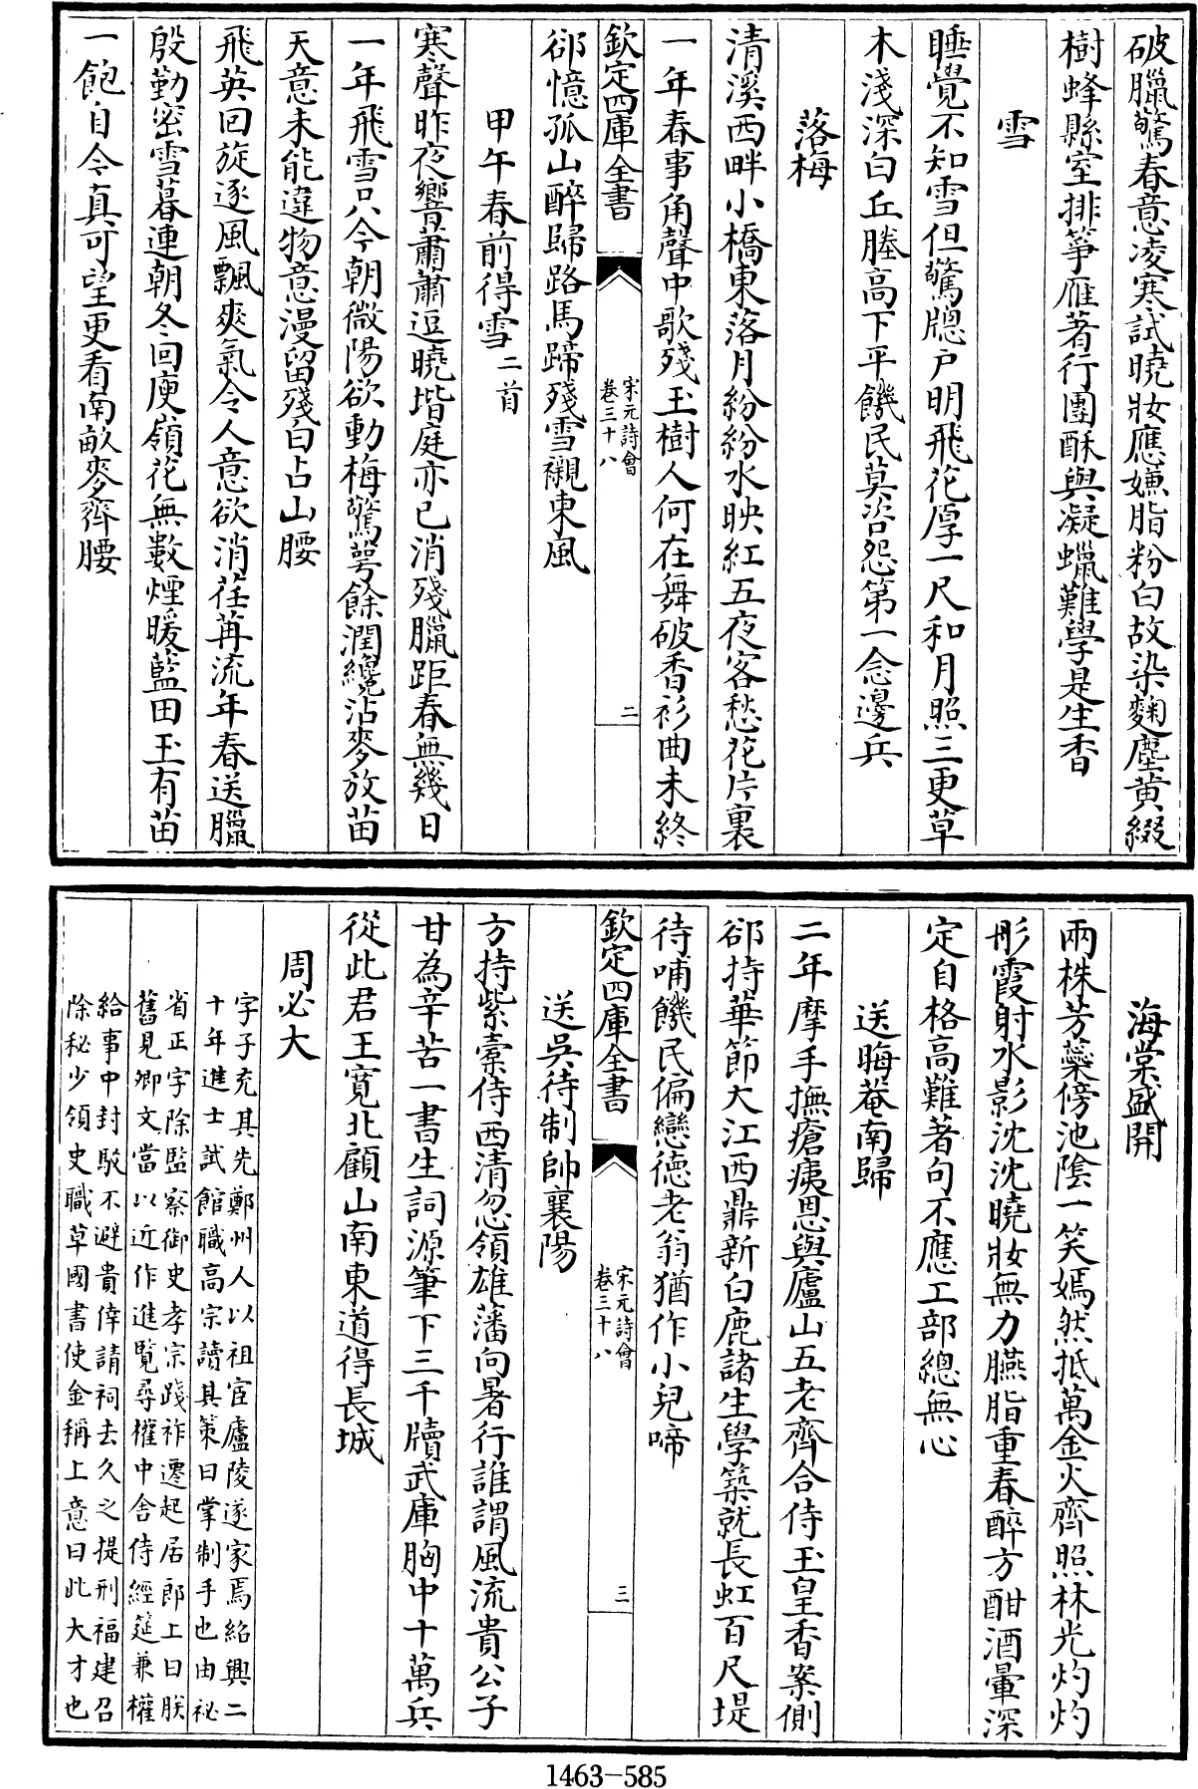 破臘驚春意凌寒試曉妝應嫌脂粉白故染麴塵黄綴
樹蜂縣室排箏雁著行團酥與凝蠟難學是生香
雪
睡覺不知雪但驚牕户明飛花厚一尺和月照三更草
木淺深白丘塍高下平饑民莫咨怨第一念邊兵
落梅
清溪西畔小橋東落月紛紛水映紅五夜客愁花片裏
一年春事角聲中歌殘玉樹人何在舞破香衫曲未終
欽定四庫全書
宋元詩會
卷三十八
二
郤憶孤山醉歸路馬蹄殘雪襯東風
甲午春前得雪二首
寒聲昨夜響蕭蕭逗曉堦庭亦已消殘臘距春無幾日
一年飛雪只今朝微陽欲動梅驚萼餘潤纔沾麥放苗
天意未能違物意漫留殘白占山腰
飛英回旋逐風飄爽氣令人意欲消荏苒流年春送臘
殷勤密雪暮連朝冬回庾嶺花無數煙暖藍田玉有苗
一飽自今真可望更看南畝麥齊腰
海棠盛開
兩株芳蘂傍池陰一笑嫣然抵萬金火齊照林光灼灼
彤霞射水影沈沈曉妝無力臙脂重春醉方酣酒暈深
定自格高難著句不應工部總無心
送晦菴南歸
二年摩手撫瘡痍恩與廬山五老齊合侍玉皇香案側
郤持華節大江西鼎新白鹿諸生學築就長虹百尺堤
待哺饑民偏戀德老翁猶作小兒啼
欽定四庫全書
宋元詩會
卷三十八
三
送吳待制帥襄陽
方持紫橐侍西清忽領雄藩向暑行誰謂風流貴公子
甘為辛苦一書生詞源筆下三千牘武庫胸中十萬兵
從此君王寛北顧山南東道得長城
周必大
字子充其先鄭州人以祖宦廬陵遂家焉紹興二
十年進士試館職高宗讀其策曰掌制手也由祕
省正字除監察御史孝宗踐祚遷起居郎上曰朕
舊見卿文當以近作進覧尋權中舍侍經筵兼權
給事中封駁不避貴倖請祠去久之提刑福建召
除秘少領史職草國書使金稱上意曰此大才也
1463-585